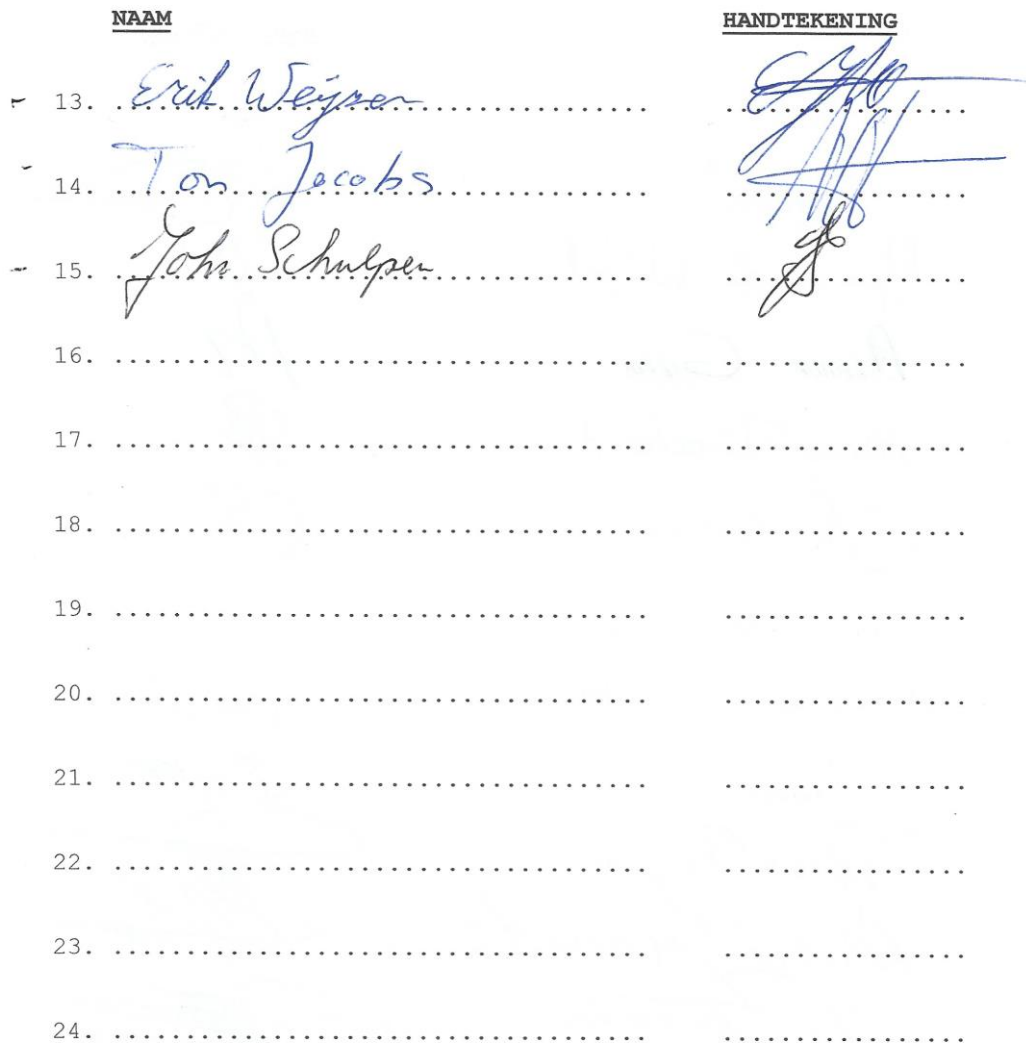 NAAM HANDTEKENING
13. Erik Weijzen
14. Ton Jacobs
15. John Schulpen
16.
17.
18.
19.
20.
21.
22.
23.
24.